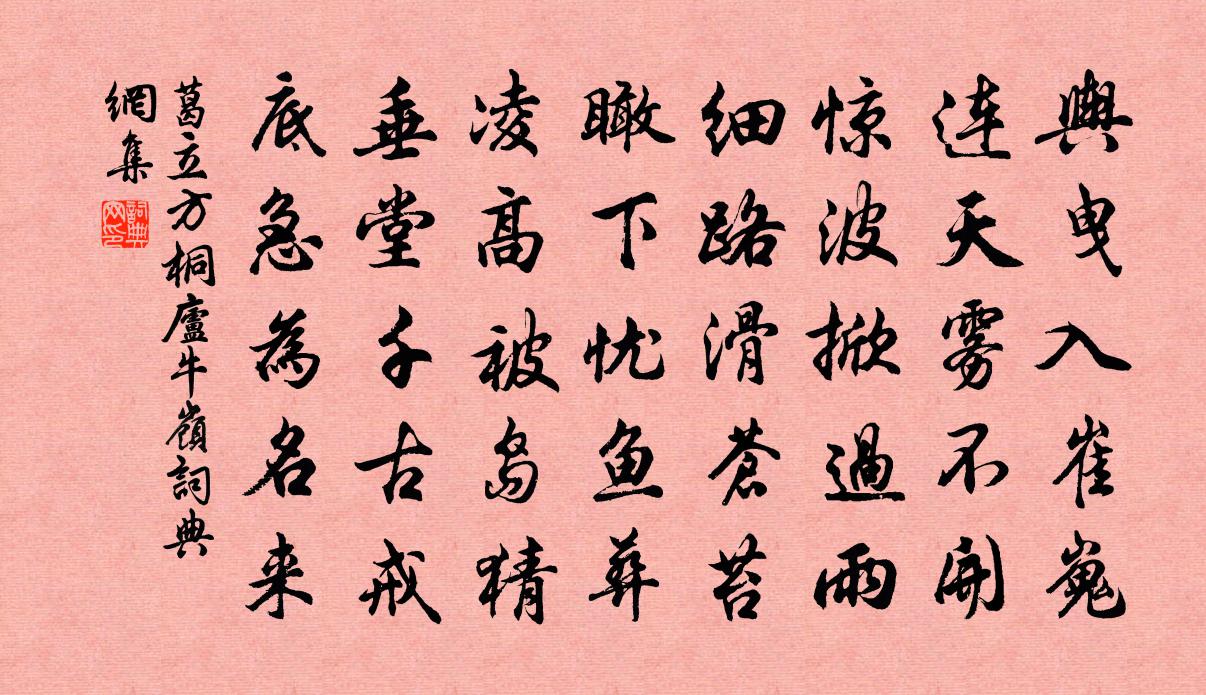 舆曳入崔嵬
连天雾不開
惊波掀過雨
细路滑蒼苔
瞰下忧鱼彝
凌高被岛猜
垂堂千古戒
底急為名来
葛立方桐廬牛嶺詞典
網集
詞典网印